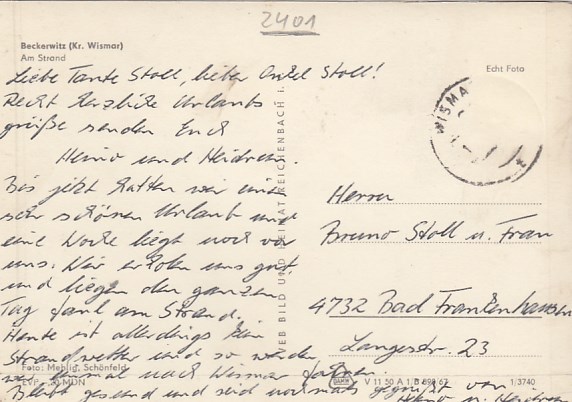 2401
Beckerwitz (Kr. Wismar)
Am Strand
Echt Foto
Liebe Tante Stoll, lieber Onkel Stoll!
Recht herzliche Urlaubs
grüße senden Euch
Heino und Heidrun.
Bis jetzt hatten wir einen
sehr schönen Urlaub und
eine Woche liegt noch vor
uns. Wir erholen uns gut
und liegen den ganzen
Tag faul am Strand.
Heute ist allerdings kein
Strandwetter und so werden
wir einmal nach Wismar fahren.
Bleibt gesund und seid nochmals gegrüßt von
Heino u. Heidrun
WISMA
VEB BILD UND HEIMAT REICHENBACH I.
Herrn
Bruno Stoll u. Frau
4732 Bad Frankenhausen
Langestr. 23
Foto: Mehlig, Schönfeld
EVP MDN
V 11 50 A 1 B
1/3740